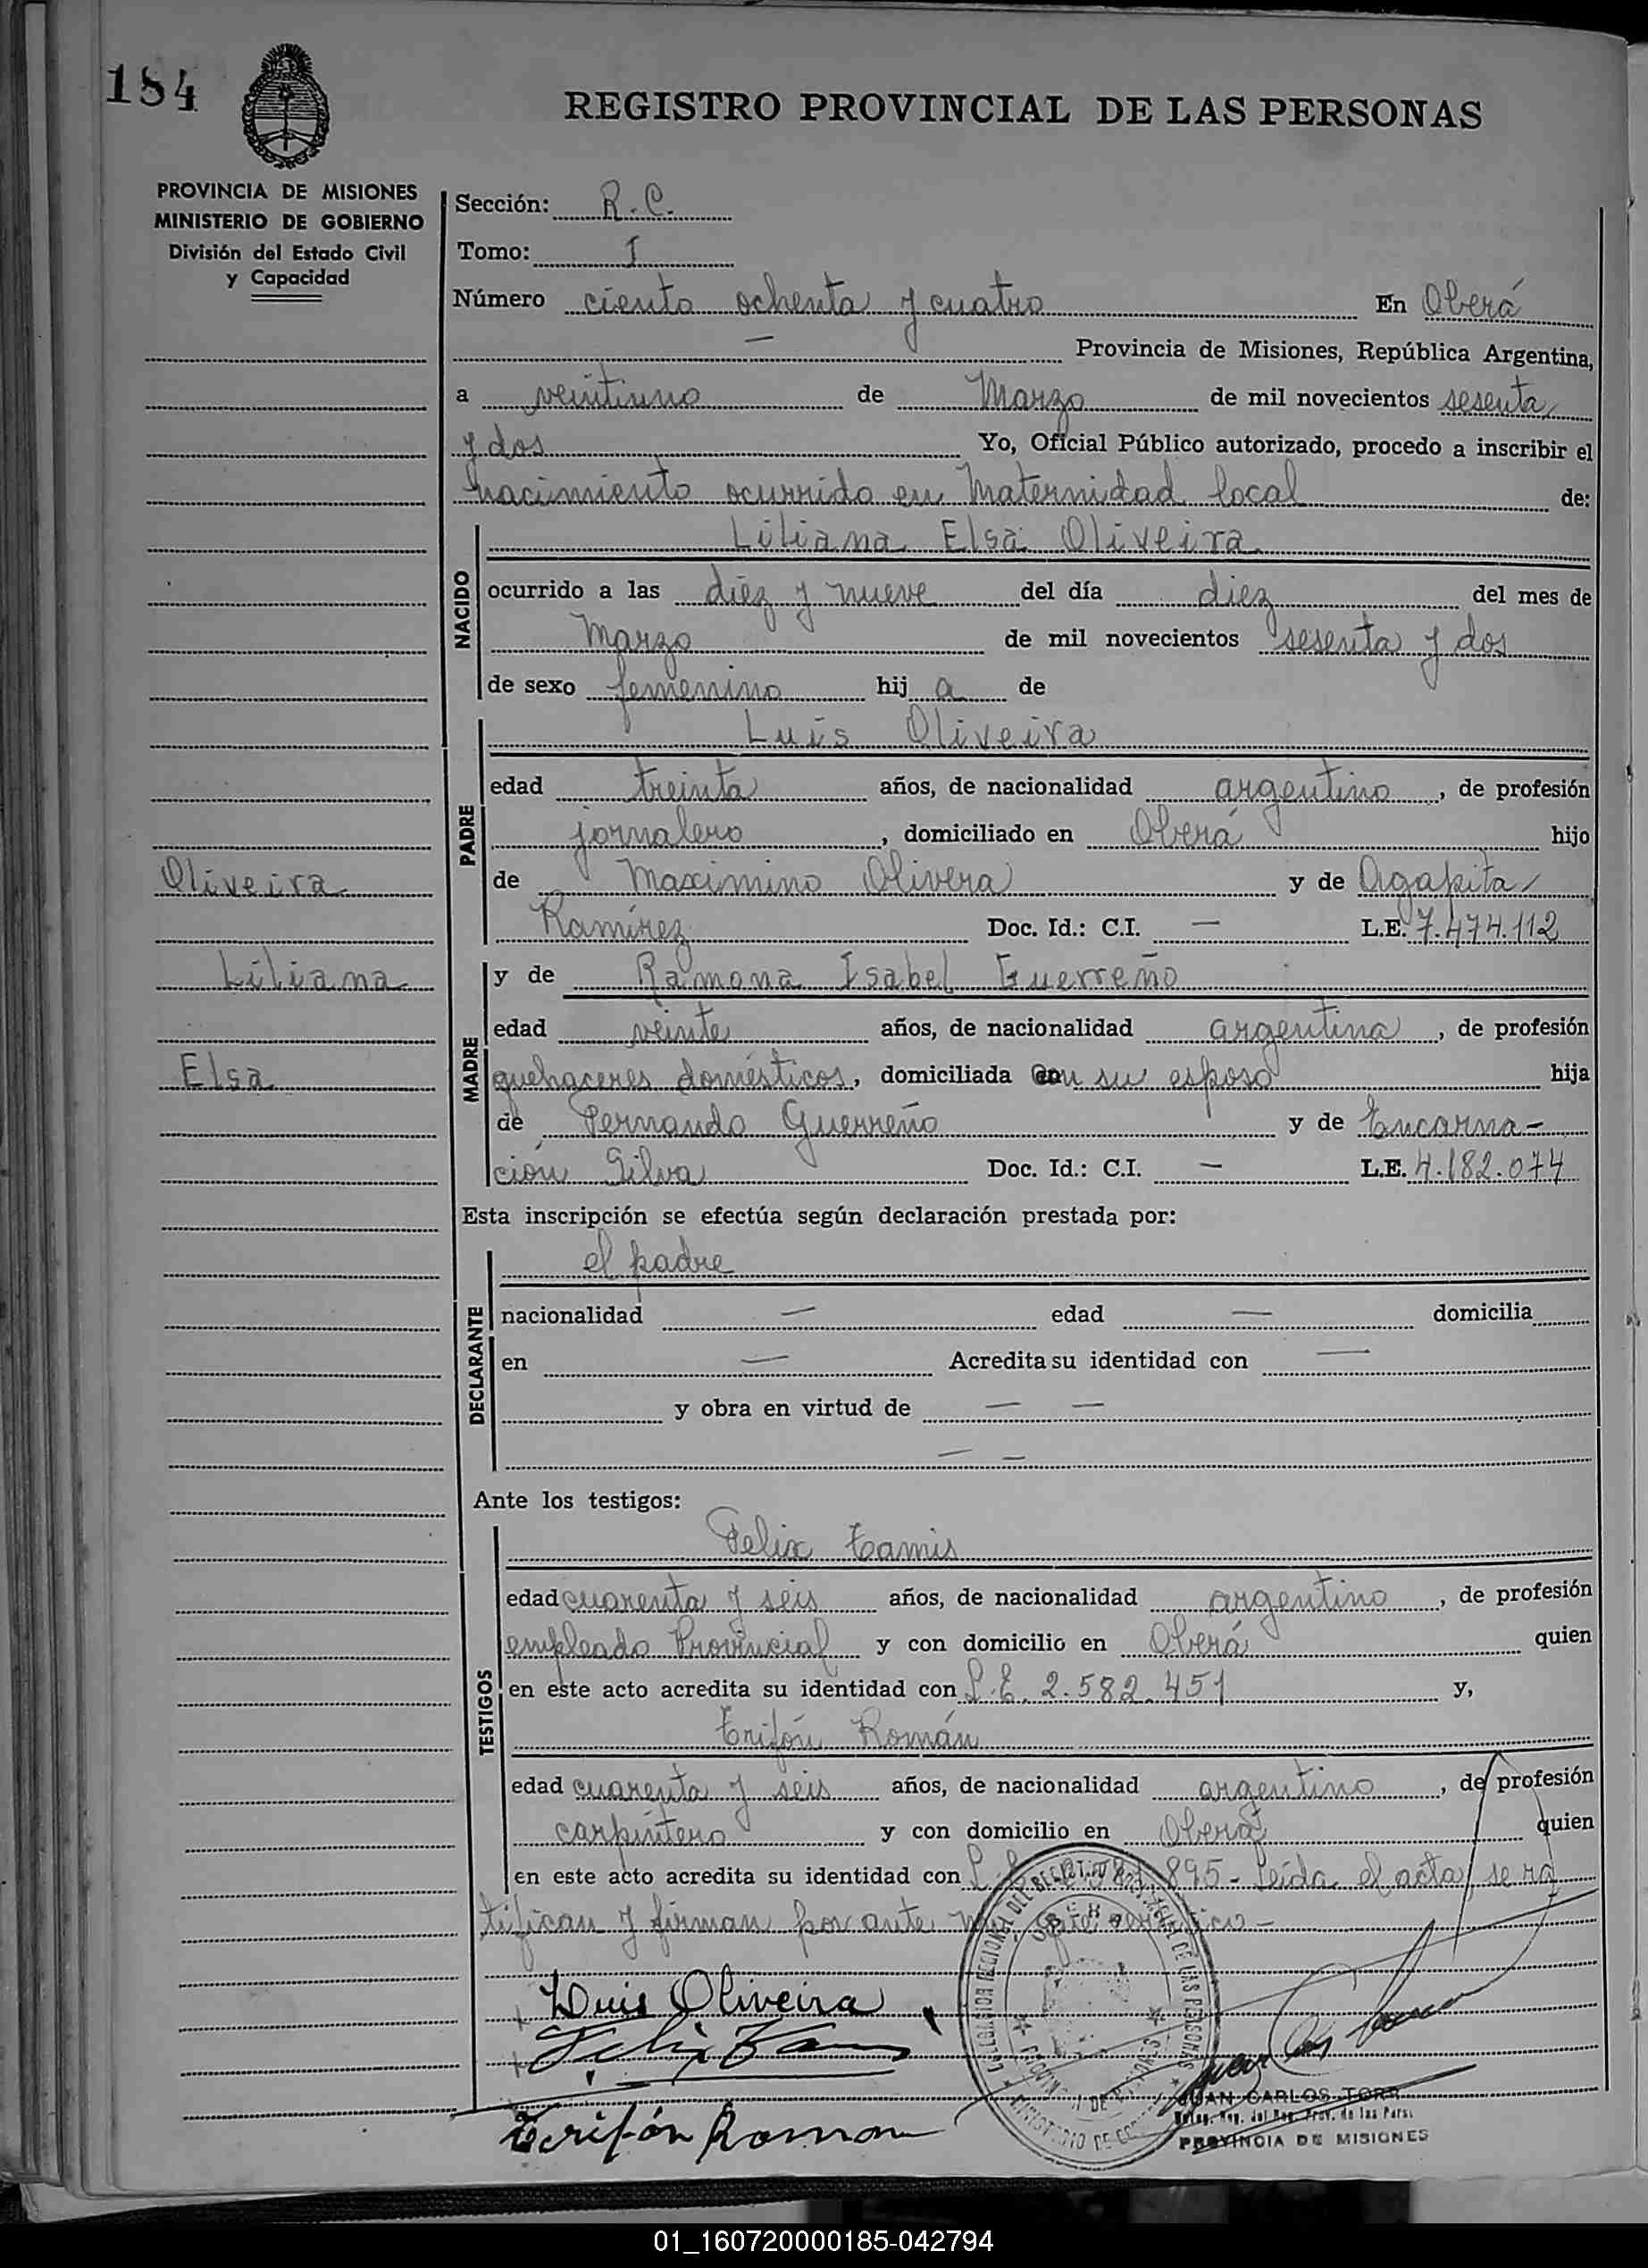 184
REGISTRO PROVINCIAL DE LAS PERSONAS
PROVINCIA DE MISIONES
MINISTERIO DE GOBIERNO
División del Estado Civil
y Capacidad
Sección: R.C.
Tomo: I
Número ciento ochenta y cuatro En Oberá
— Provincia de Misiones, República Argentina,
a veintiuno de Marzo de mil novecientos sesenta
y dos Yo, Oficial Público autorizado, procedo a inscribir el
nacimiento ocurrido en Maternidad local de:
NACIDO
Liliana Elsa Oliveira
ocurrido a las diez y nueve del día diez del mes de
Marzo de mil novecientos sesenta y dos
de sexo femenino hij a de
PADRE
Luis Oliveira
edad treinta años, de nacionalidad argentino, de profesión
jornalero, domiciliado en Oberá hijo
de Maximino Olivera y de Agapita
Ramírez Doc. Id.: C.I. — L.E. 7.474.112
Oliveira
Liliana
Elsa
MADRE
y de Ramona Isabel Guerreño
edad veinte años, de nacionalidad argentina, de profesión
quehaceres domésticos, domiciliada con su esposo hija
de Fernando Guerreño y de Encarna-
ción Silva Doc. Id.: C.I. — L.E. 4.182.074
Esta inscripción se efectúa según declaración prestada por:
DECLARANTE
el padre
nacionalidad — edad — domicilia
en — Acredita su identidad con —
y obra en virtud de — —
— —
Ante los testigos:
TESTIGOS
Felix Tamis
edad cuarenta y seis años, de nacionalidad argentino, de profesión
empleado Provincial y con domicilio en Oberá quien
en este acto acredita su identidad con L.E. 2.582.451 y,
Trifón Román
edad cuarenta y seis años, de nacionalidad argentino, de profesión
carpintero y con domicilio en Oberá quien
en este acto acredita su identidad con 895- Leída el acta, se ra
tifican y firman por ante
Luis Oliveira
Trifón Roman
JUAN CARLOS
PROVINCIA DE MISIONES
01_160720000185-042794